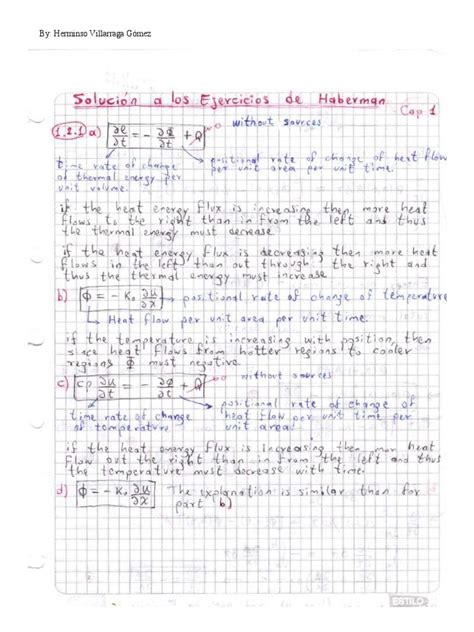 By: Herminso Villarraga Gómez
Solución a los Ejercicios de Haberman
Cap 1
without sources
1.2.1 a) ∂e/∂t = - ∂Φ/∂t + Q → 0
time rate of change of thermal energy per unit volume.
positional rate of change of heat flow per unit area per unit time.
if the heat energy flux is increasing then more heat
flows to the right than in from the left and thus
the thermal energy must decrease
if the heat energy flux is decreasing then more heat
flows in the left than out through the right and
thus the thermal energy must increase
b) Φ = - K₀ ∂u/∂x → positional rate of change of temperature
Heat flow per unit area per unit time.
if the temperature is increasing with position, then
since heat flows from hotter regions to cooler
regions Φ must negative.
c) cρ ∂u/∂t = - ∂Φ/∂x + Q → 0 without sources
time rate of change of temperature
positional rate of change of heat flow per unit time per unit area.
if the heat energy flux is increasing then more heat
flow out the right than in from the left and thus
the temperature must decrease with time.
d) Φ = - K₀ ∂u/∂x The explanation is similar than for
part b)
ESTILO